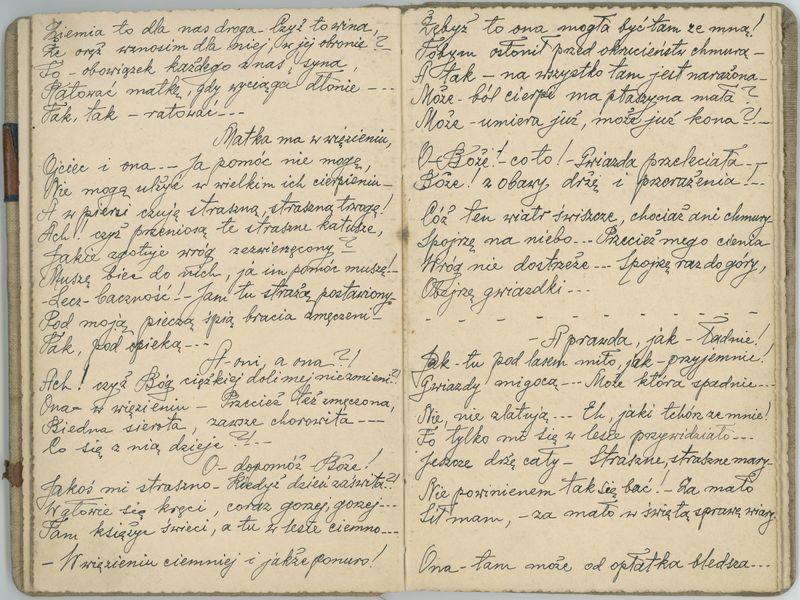 Ziemia to dla nas droga - Czyż to wina,
Że oręż wznosim dla niej, w jej obronie?
To - obowiązek każdego z nas, syna
Ratować matkę, gdy wyciąga dłonie ---
Tak, tak - ratować ---
Matka ma w więzieniu,
Ojciec i ona --- Ja pomóc nie mogę,
Nie mogę ulżyć w wielkim ich cierpieniu -
A w piersi czuję straszną, straszną trwogę!
Ach! czyż przeniosą te straszne katusze,
Jakie zgotuje wróg zezwierzęcony?-
Muszę biec do nich, ja im pomóc muszę!-
-Lecz- baczność!- Jam tu strażą postawiony-
Pod moją pieczą śpią bracia zmęczeni -
Tak, pod opieką ---
A - oni, a ona?!
Ach! czyż Bóg ciężkiej doli mej nie zmieni?!
Ona - w więzieniu - Przecież też zmęczona,
Biedna sierota, zawsze chorowita ---
Co się z nią dzieje?!--
O - dopomóż Boże!
Jakoś mi straszno - Kiedyż dzień zaświta?!
W głowie się kręci, coraz gorzej, gorzej ---
Tam księżyc świeci, a tu w lesie ciemno ---
- W więzieniu ciemniej i jakże ponuro!
Żebyż to ona mogła być tam ze mną!
Tobym osłonił przed okrucieństw chmurą -
A tak - na wszystko tam jest narażona -
Może - ból cierpi ma ptaszyna mała?
Może - umiera już, może już kona?!-
O - Boże! - co to! - Gwiazda przeleciała ---
Boże! z obawy drżę i przerażenia!--
Cóż ten wiatr świszcze, chociaż ani chmury
Spojrzę na niebo --- Przecież mego cienia
Wróg nie dostrzeże --- Spojrzę raz do góry,
Obejrzę gwiazdki ---
- - - - - - - - - -
- A prawda, jak - ładnie!
Jak - tu pod lasem miło, jak - przyjemnie!
Gwiazdy migocą --- Może która spadnie ---
Nie, nie zlatują --- Eh, jaki tchórz ze mnie!
To tylko mi się w lesie przywidziało ---
Jeszcze drżę cały - Straszne, straszne mary -
Nie powinienem tak się bać! - Za mało
Sił mam, - za mało w świętą sprawę wiary
Ona - tam może od opłatka bledsza ---